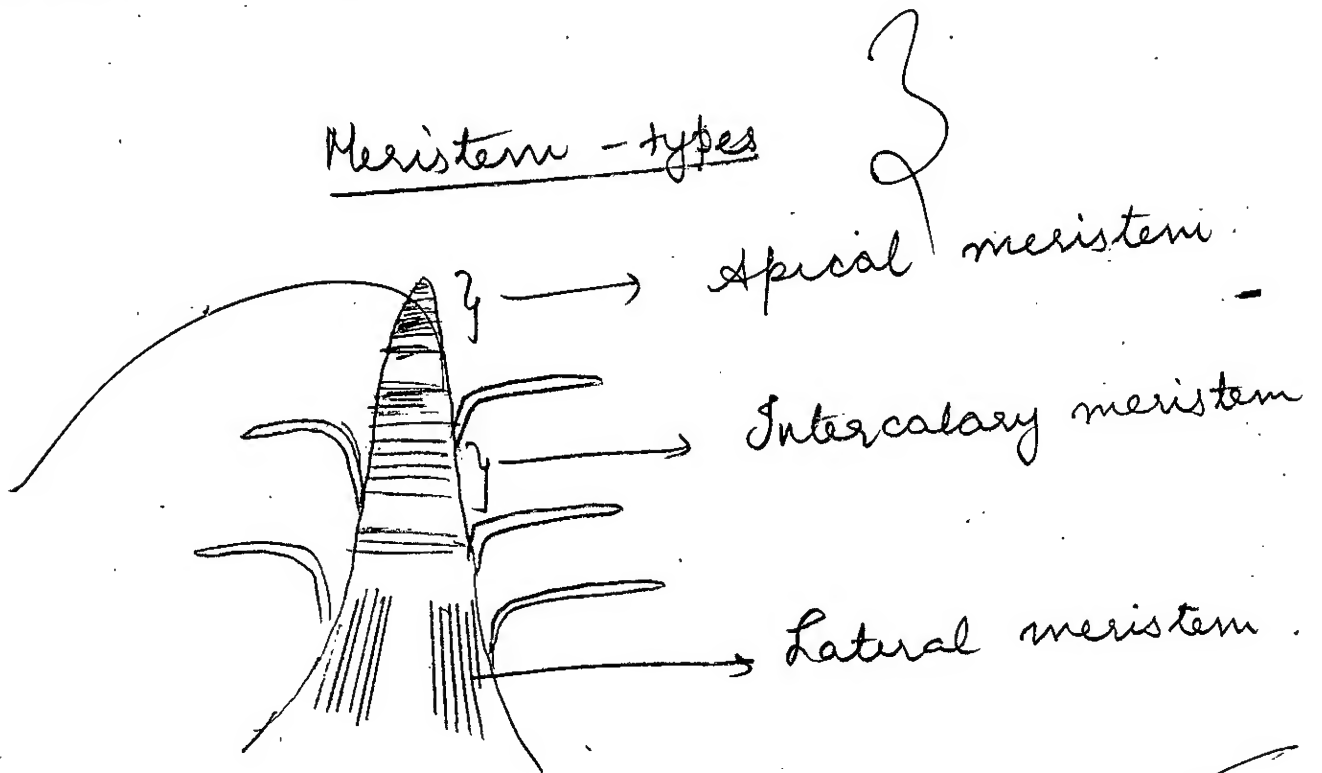 Meristem - types
Apical meristem.
Intercalary meristem
Lateral meristem.